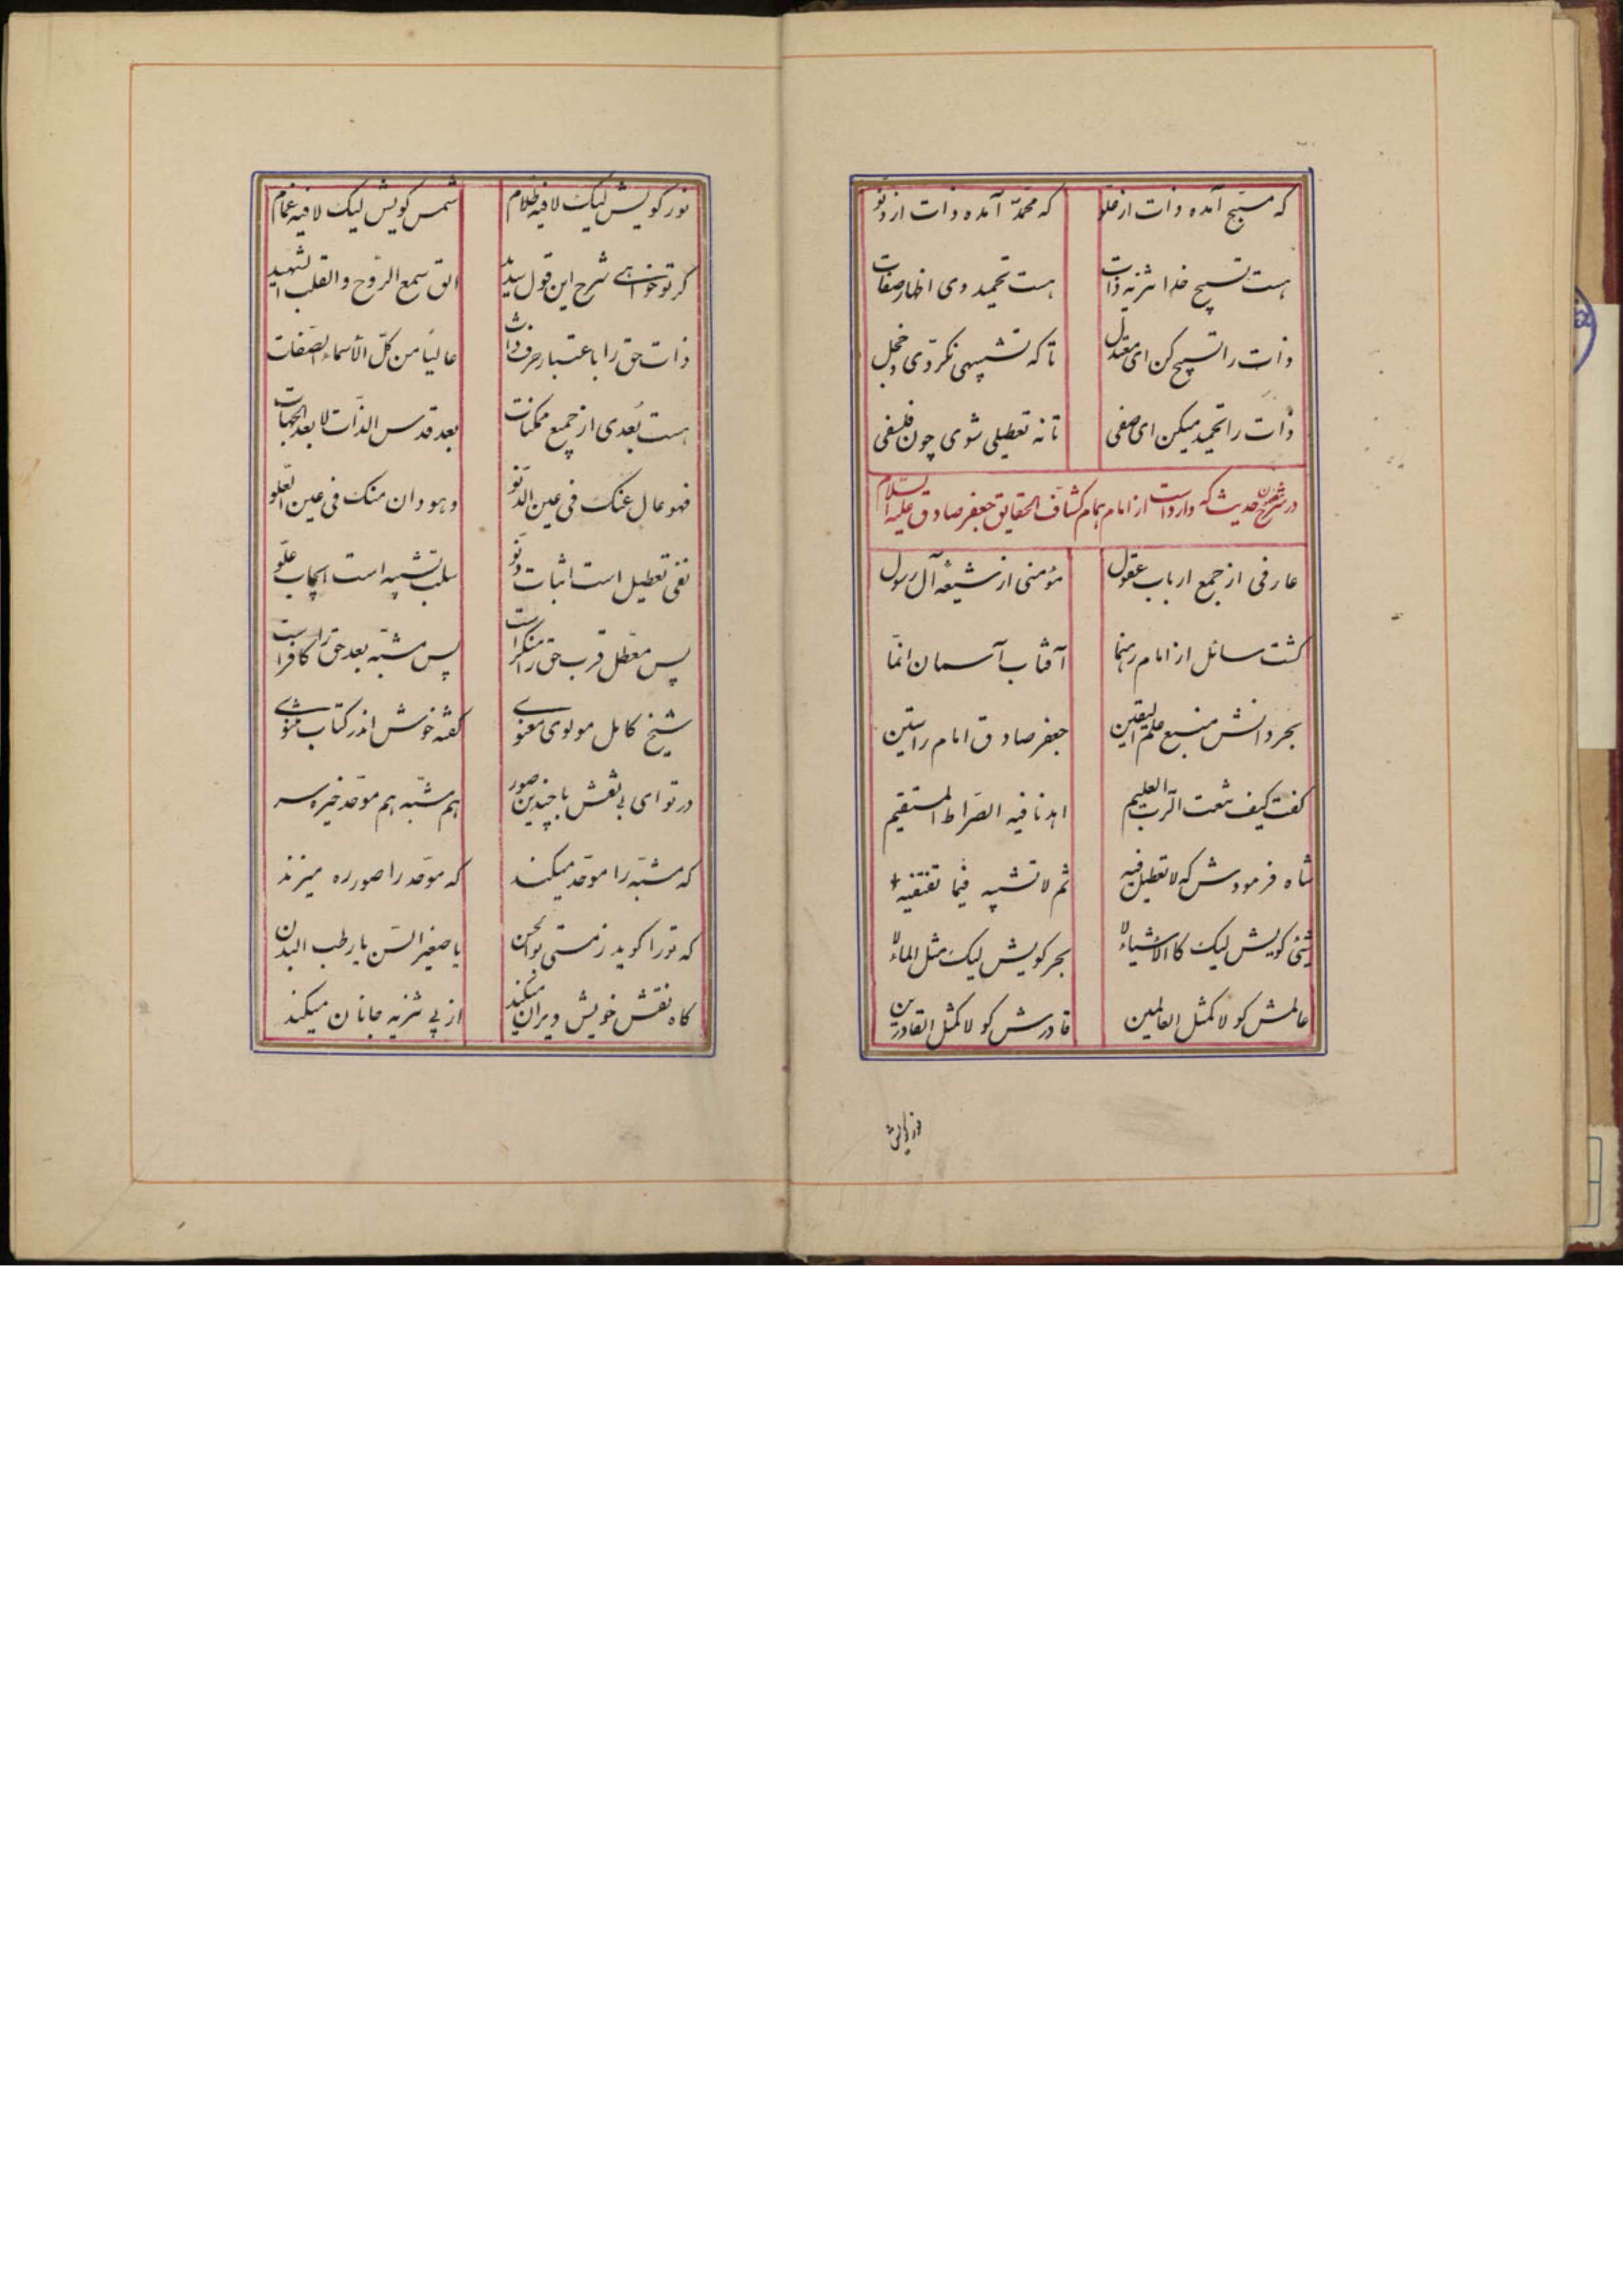 که مسبّح آمده ذات از علو
که محمّد آمده ذات از دنو
هست تسبیح خدا تنزیه ذات
هست تحمید وی اظهار صفات
ذات را تسبیح کن ای معتدل
تا که تشبیهی نگردی و خجل
ذات را تحمید میکن ای صفی
تا نه تعطیلی شوی چون فلسفی
در شرح حدیث که وارد است از امام همام کشاف الحقایق جعفر صادق علیه السلام
عارفی از جمع ارباب عقول
مؤمنی از شیعهٔ آل رسول
گشت سائل از امام رهنما
آفتاب آسمان انّما
بحر دانش منبع علم الیقین
جعفر صادق امام راستین
گفت کیف نعت الرّب العلیم
اهدنا فیه الصّراط المستقیم
شاه فرمودش که لا تعطیل فیه
ثم لا تشبیه فیما تقتفیه
شیئی کویش لیک کالاشیاء لا
بحر کویش لیک مثل الماء لا
عالمش کو لا کمثل العالمین
قادرش کو لا کمثل القادرین
نور کویش
نور کویش لیک لا فیه ظلام
شمس کویش لیک لا فیه غمام
کر تو خواهی شرح این قول سدید
الق سمع الرّوح والقلب الشهید
ذات حق را باعتبار صرف ذات
عالیاً من کلّ الاسماء الصّفات
هست بُعدی از جمیع ممکنات
بعد قدس الذّات لا بعد الجهات
فهو عال عنک فی عین الدّنو
وهو دان منک فی عین العلو
نفی تعطیل است اثبات دنوّ
سلب تشبیه است ایجاب علوّ
پس معطّل قرب حق را منکر است
پس مشبّه بعد حق را کافر است
شیخ کامل مولوی معنوی
گفته خوش اندر کتاب مثنوی
در تو ای بی نقش با چندین صور
هم مشبّه هم موحّد خیره سر
که مشبّه را موحّد میکند
که موحّد را صور ره میزند
که تو را کوید ز مستی بوالحسن
یا صغیر السّن یا رطب البدن
کاه نقش خویش ویران میکند
از پی تنزیه جانان میکند